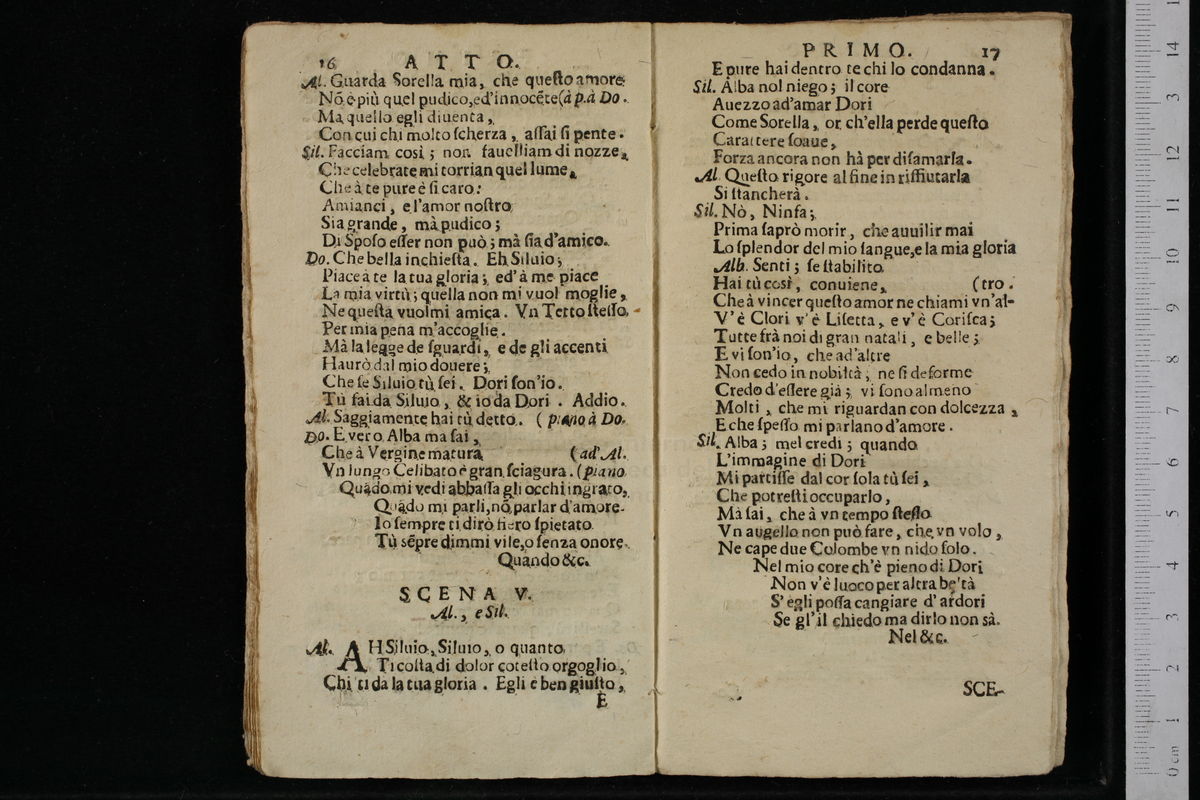 16 ATTO.
Al. Guarda Sorella mia, che queſto amore
Nõ è più quel pudico, ed'innocẽte (à p. à Do.
Ma quello egli diuenta,
Con cui chi molto ſcherza, aſſai ſi pente.
Sil. Facciam così; non fauelliam di nozze,
Che celebrate mi torrian quel lume,
Che à te pure è ſi caro:
Amianci, e l'amor noſtro
Sia grande, mà pudico;
Di Spoſo eſſer non può; mà ſia d'amico.
Do. Che bella inchieſta. Eh Siluio;
Piace à te la tua gloria; ed'à me piace
La mia virtù; quella non mi vuol moglie,
Ne queſta vuolmi amica. Vn Tetto ſteſſo
Per mia pena m'accoglie.
Mà la legge de ſguardi, e de gli accenti
Haurò dal mio douere;
Che ſe Siluio tù ſei. Dori ſon'io.
Tù fai da Siluio, & io da Dori. Addio.
Al. Saggiamente hai tù detto. (piano à Do.
Do. E vero Alba ma ſai,
Che à Vergine matura (ad' Al.
Vn lungo Celibato è gran ſciagura. (piano
Quãdo mi vedi abbaſſa gli occhi ingrato,
Quãdo mi parli, nõ parlar d'amore.
Io ſempre ti dirò fiero ſpietato
Tù sẽpre dimmi vile, o ſenza onore.
Quando &c.
SCENA V.
Al., e Sil.
Al. AH Siluio, Siluio, o quanto
Ti coſta di dolor coteſto orgoglio,
Chi ti da la tua gloria. Egli è ben giuſto,
E
PRIMO. 17
E pure hai dentro te chi lo condanna.
Sil. Alba nol niego; il core
Auezzo ad'amar Dori
Come Sorella, or ch'ella perde queſto
Carattere ſoaue,
Forza ancora non hà per diſamarla.
Al. Queſto rigore al fine in riffiutarla
Si ſtancherà.
Sil. Nò, Ninfa;
Prima ſaprò morir, che auuilir mai
Lo ſplendor del mio ſangue, e la mia gloria
Alb. Senti; ſe ſtabilito
Hai tù così, conuiene, (tro.
Che à vincer queſto amor ne chiami vn'al-
V'è Clori v'è Liſetta, e v'è Coriſca;
Tutte frà noi di gran natali, e belle;
E vi ſon'io, che ad'altre
Non cedo in nobiltà; ne ſi deforme
Credo d'eſſere già; vi ſono almeno
Molti, che mi riguardan con dolcezza,
E che ſpeſſo mi parlano d'amore.
Sil. Alba; mel credi; quando
L'immagine di Dori
Mi partiſſe dal cor ſola tù ſei,
Che potreſti occuparlo,
Mà ſai, che à vn tempo ſteſſo
Vn augello non può fare, che vn volo,
Ne cape due Colombe vn nido ſolo.
Nel mio core ch'è pieno di Dori
Non v'è luoco per altra beltà
S'egli poſſa cangiare d'ardori
Se gl'il chiedo ma dirlo non sà.
Nel &c.
SCE-
0 cm 1 2 3 4 5 6 7 8 9 10 11 12 3 14